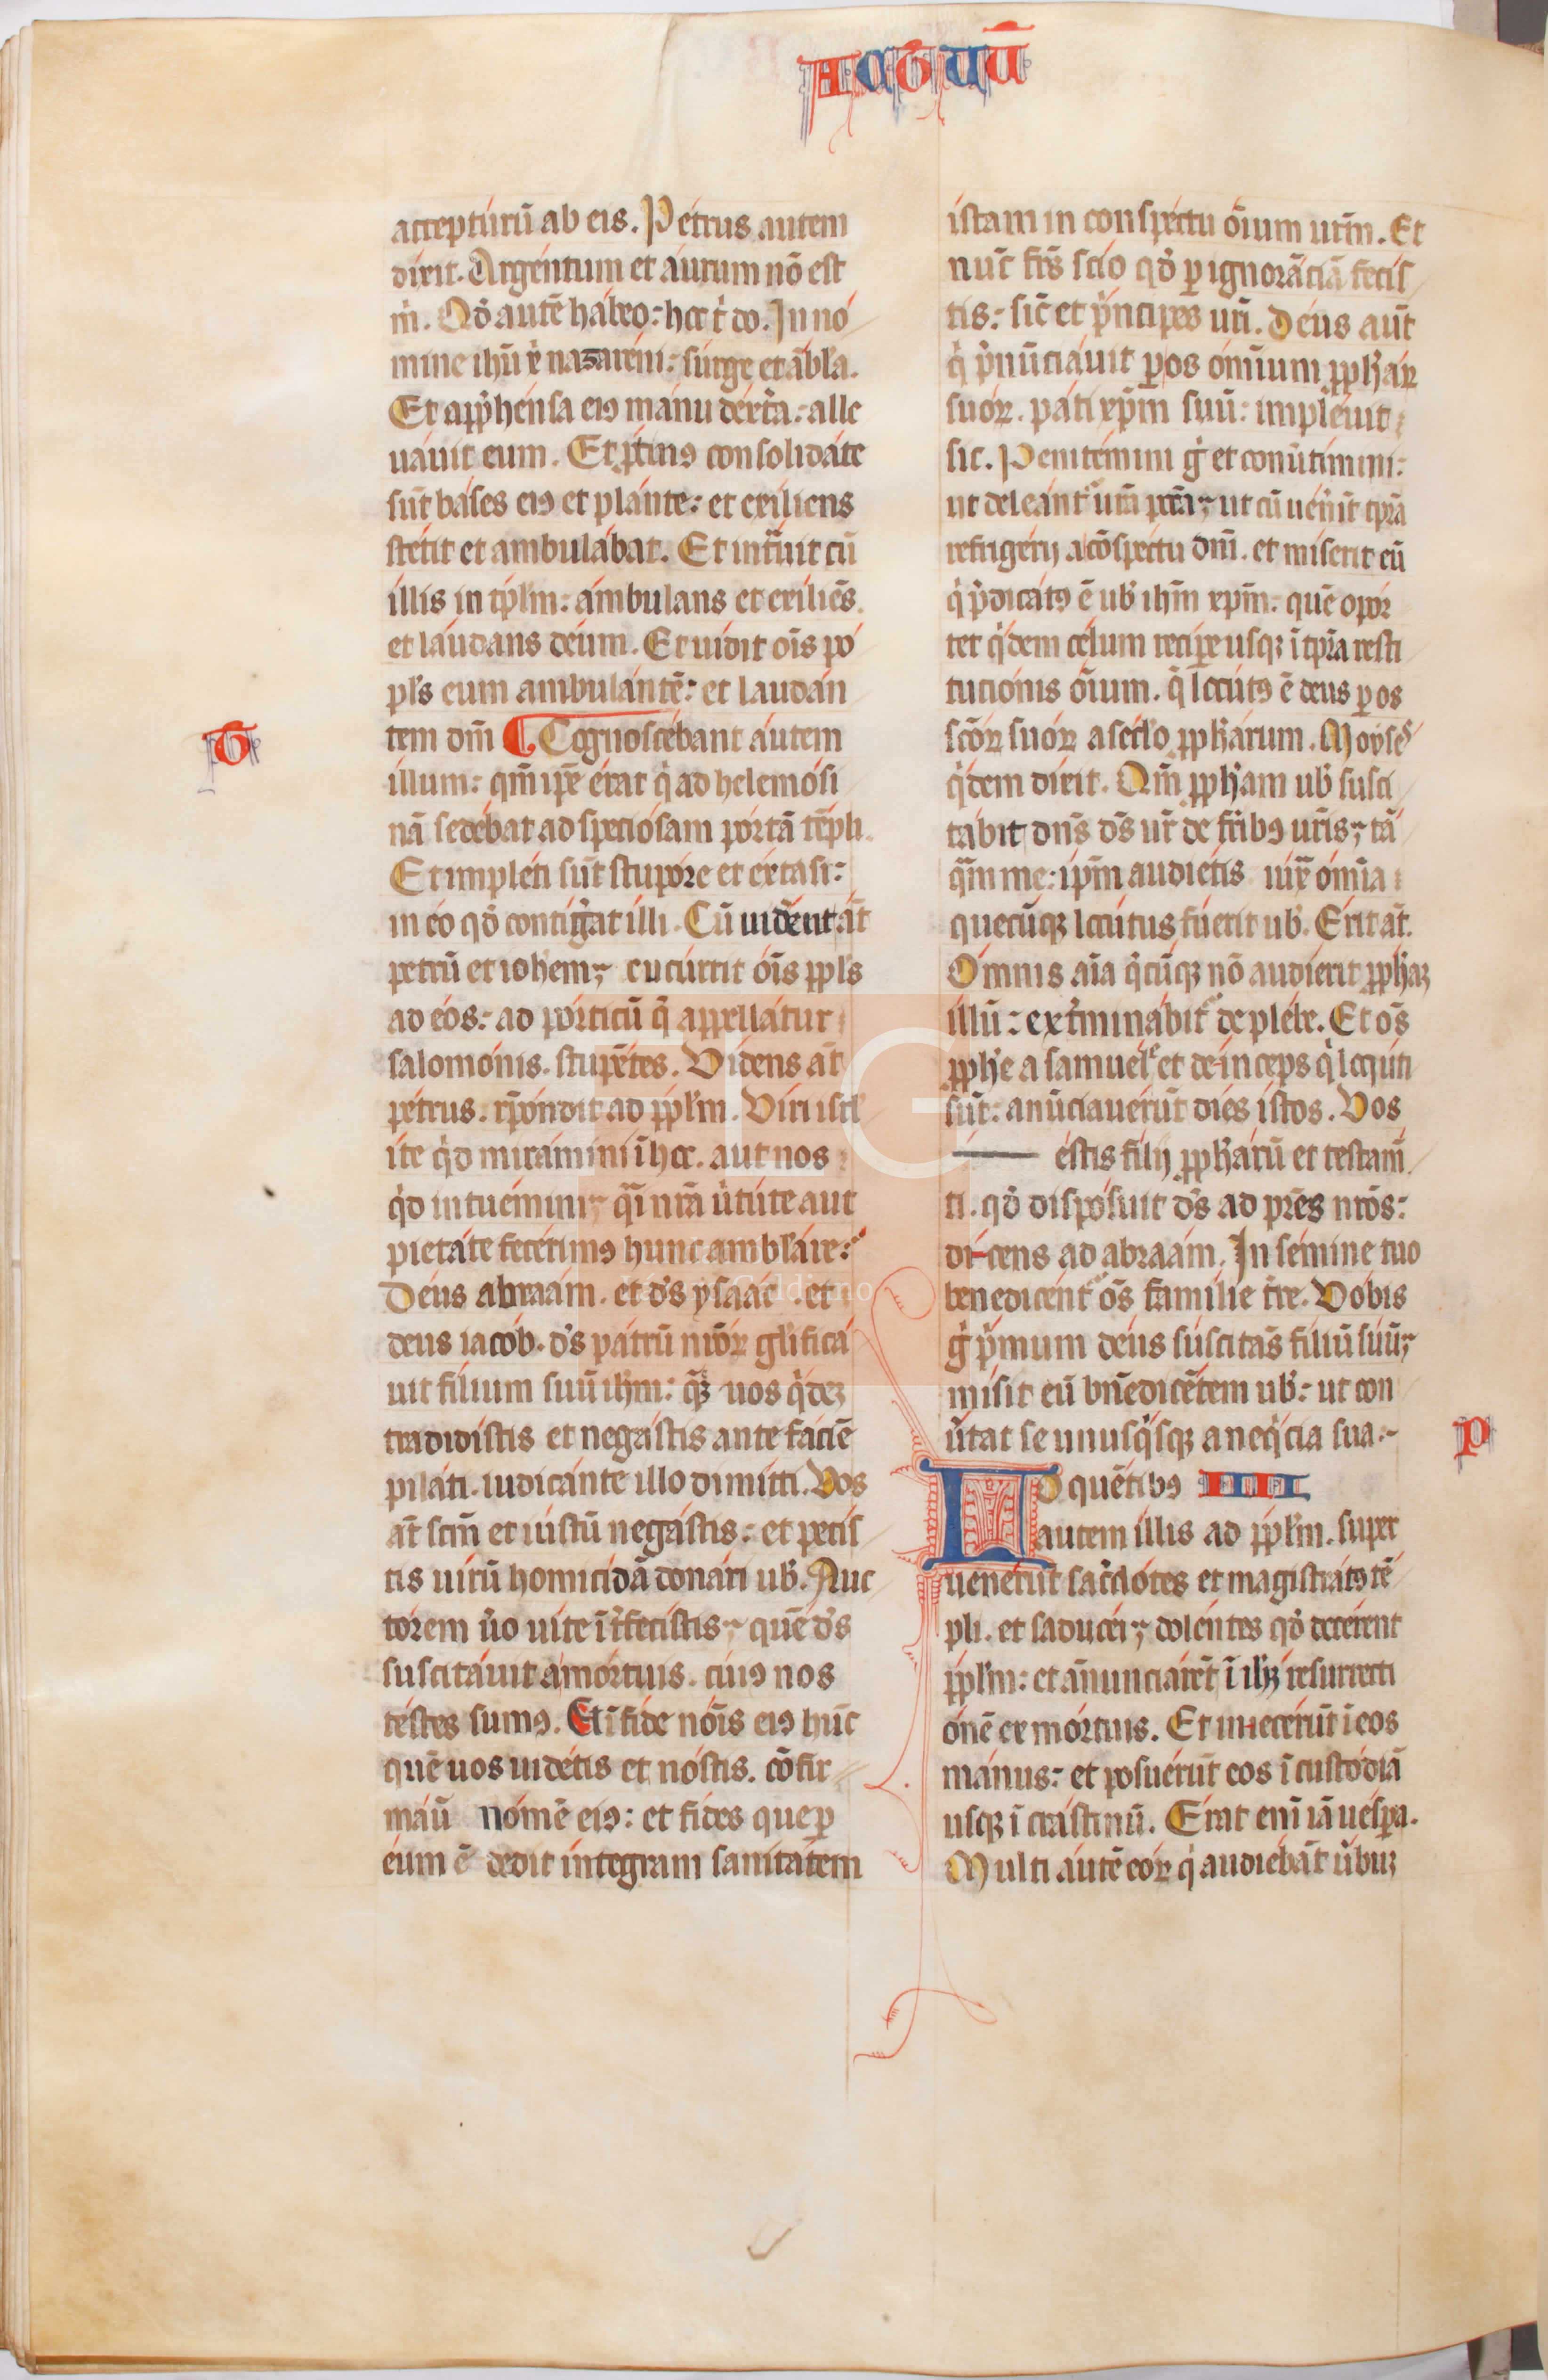 Actuū
accepturū ab eis. Petrus autem
dixit. Argentum et aurum nō est
m̄. Qd̓ autē habeo: hoc t̓ do. In no
mine ihū x̓ nazareni: surge et ābl̓a.
Et app̓hensa ei9 manu dext̓a: alle
uauit eum. Et ꝓtin9 consolidate
sūt bases ei9 et plante: et exiliens
stetit et ambulabat. Et int̓uit cū
illis in tp̄lm: ambulans et exiliēs
et laudans deum. Et uidit oīs po
pl̓s eum ambulantē: et laudan
tem dm̄ Cognoscebant autem
G
illum: qm̄ ip̄e erat q̓ ad helemosi
nā sedebat ad speciosam portā tēpli.
Et impleti sūt stupore et extasi:
in eo qd̓ contig̓at illi. Cū uid̓ent at̄
petrū et ioh̓em; cucurrit oīs ppl̓s
ad eos: ad porticū q̓ appellatur
salomonis. stupētes. Videns at̄
petrus. rn̄dit ad ppl̓m. Viri isr̓l
ite q̓d miramini ī hoc. aut nos
q̓d intuemini; q̄i nr̄a u̓tute aut
pietate fecerim9 hunc ambl̓are:
Deus abraam. et d̓s ysaac. et
deus iacob. d̓s patrū nr̄oꝝ gl̓ifica
uit filium suū ih̄m: q̓ꝫ uos q̓deꝫ
tradidistis et negastis ante faciē
pilati. iudicante illo dimitti. Vos
at̄ scm̄ et iustū negastis: et petis
tis uirū homicidā donari ub̓. Auc
torem u̓o uite īt̓fecistis; quē d̓s
suscitauit a mortuis. cui9 nos
testes sum9. Et ī fide nōīs ei9 hūc
quē uos uidetis et nostis. cōfir
mauī nomē ei9: et fides que ꝑ
eum ē dedit integram sanitatem
istam in conspectu oīum urm̄. Et
nūc frs̄ scio qd̓ ꝑ ignorāciā fecis
tis: sic̄ et p̓ncipes ur̄i. Deus aut̄
q̓ p̓nūciauit ꝑ os omīum ꝓph̓aꝝ
suoꝝ. pati xp̄m suū: impleuit
sic. Penitemini g̓ et conu̓timini:
ut deleant᷑ ur̄a pcc̄a; ut cū uen̓īt tp̄ra
refrigerij a cōspectu dnī. et miserit eū
q̓ p̓dicat9 ē ub̓ ih̄m xp̄m: quē opor
tet q̓dem celum recip̓e usqꝫ ī tp̄ra resti
tucionis oīum. q̄ locut9 ē deus ꝑ os
scōꝝ suoꝝ a secl̓o ꝓph̓arum. Moyses
q̓dem dixit. Qm̄ ꝓph̓am ub̓ susci
tabit dns̄ d̓s ur̄ de frīb9 ur̄is; tā
q̄m me: ip̄m audietis iux̄ omīa
quecūqꝫ locutus fuerit ub̓. Erit at̄.
Omnis aīa q̓cūqꝫ nō audierit ꝓph̓aꝫ
illū: ext̓minabit᷑ de plebe. Et os̄
ꝓph̓e a samuel et deinceps q̓ locuti
sūt: anūciauerūt dies istos. Vos
estis filij ꝓph̓arū et testam̄
ti. qd̓ disposuit d̓s ad pr̄es nr̄os:
dicens ad abraam. In semine tuo
benedicent᷑ os̄ familie tr̄e. Vobis
g̓ p̓mum deus suscitās filiū suū;
misit eū bn̄edicētem ub̓: ut con
u̓tat se unusq̓sqꝫ a neq̓cia sua.
P
Loquētib9 IIII
autem illis ad ppl̓m. super
uenerūt sac̓dotes et magistrat9 tē
pli. et saducei; dolentes qd̓ docerent
ppl̓m: et anunciarēt ī ih̓u resurrecti
onē ex mortuis. Et iniecerūt ī eos
manus: et posuerūt eos ī custodiā
usqꝫ ī crastinū. Erat enī iā uesp̓a.
Multi autē eoꝝ q̓ audiebāt u̓buꝫ